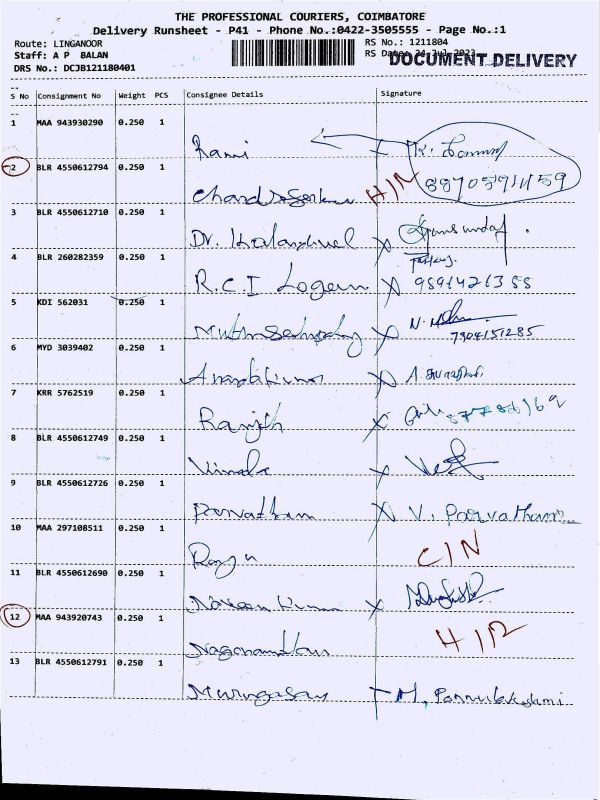 THE PROFESSIONAL COURIERS, COIMBATORE
Delivery Runsheet - P41 - Phone No.:0422-3505555 - Page No.:1
Route: LINGANOOR
RS No.: 1211804
Staff: A P BALAN
RS Date: 24 Jul 2023
DOCUMENT DELIVERY
DRS No.: DCJB121180401
S No Consignment No Weight PCS Consignee Details Signature
1 MAA 943930290 0.250 1
Rami K.
2 BLR 4550612794 0.250 1
Chandrasekar H/N
3 BLR 4550612710 0.250 1
Dr. X
4 BLR 260282359 0.250 1
R.C.I Logam X 9591421355
5 KDI 562031 0.250 1
X N. 7904151285
6 MYD 3039402 0.250 1
Anandakumar X
7 KRR 5762519 0.250 1
Ranjith X
8 BLR 4550612749 0.250 1
Vimala X
9 BLR 4550612726 0.250 1
Parvatham X V. Parvatham
10 MAA 297108511 0.250 1
C/N
11 BLR 4550612690 0.250 1
Naveen Kumar X
12 MAA 943920743 0.250 1
13 BLR 4550612791 0.250 1
Murugasan M. Ponnulakshmi